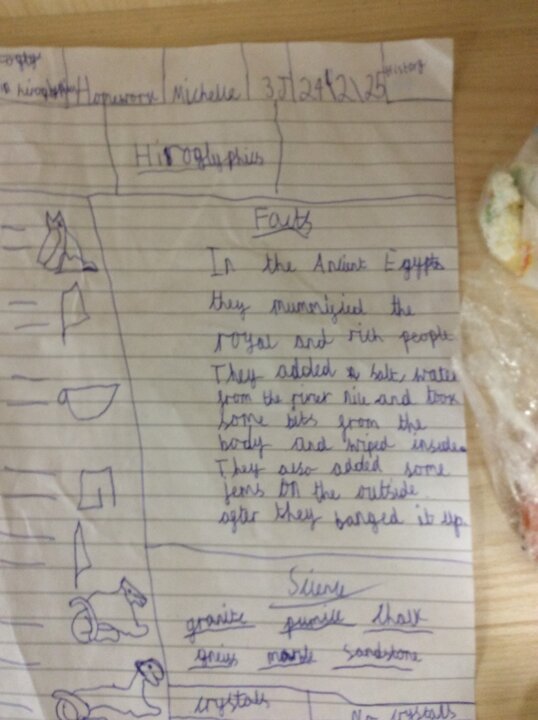 Homework Michelle 3J 24\2\25 History
Hiroglyphics
Facts
In the Ancient Egypts
they mummizied the
royal and rich people
They added a salt water
from the river Nile and took
some bits from the
body and wiped inside.
They also added some
jems on the outside
after they banged it up
Science
granite pumice Chalk
gneiss marble Sandstone
crystals No crystals